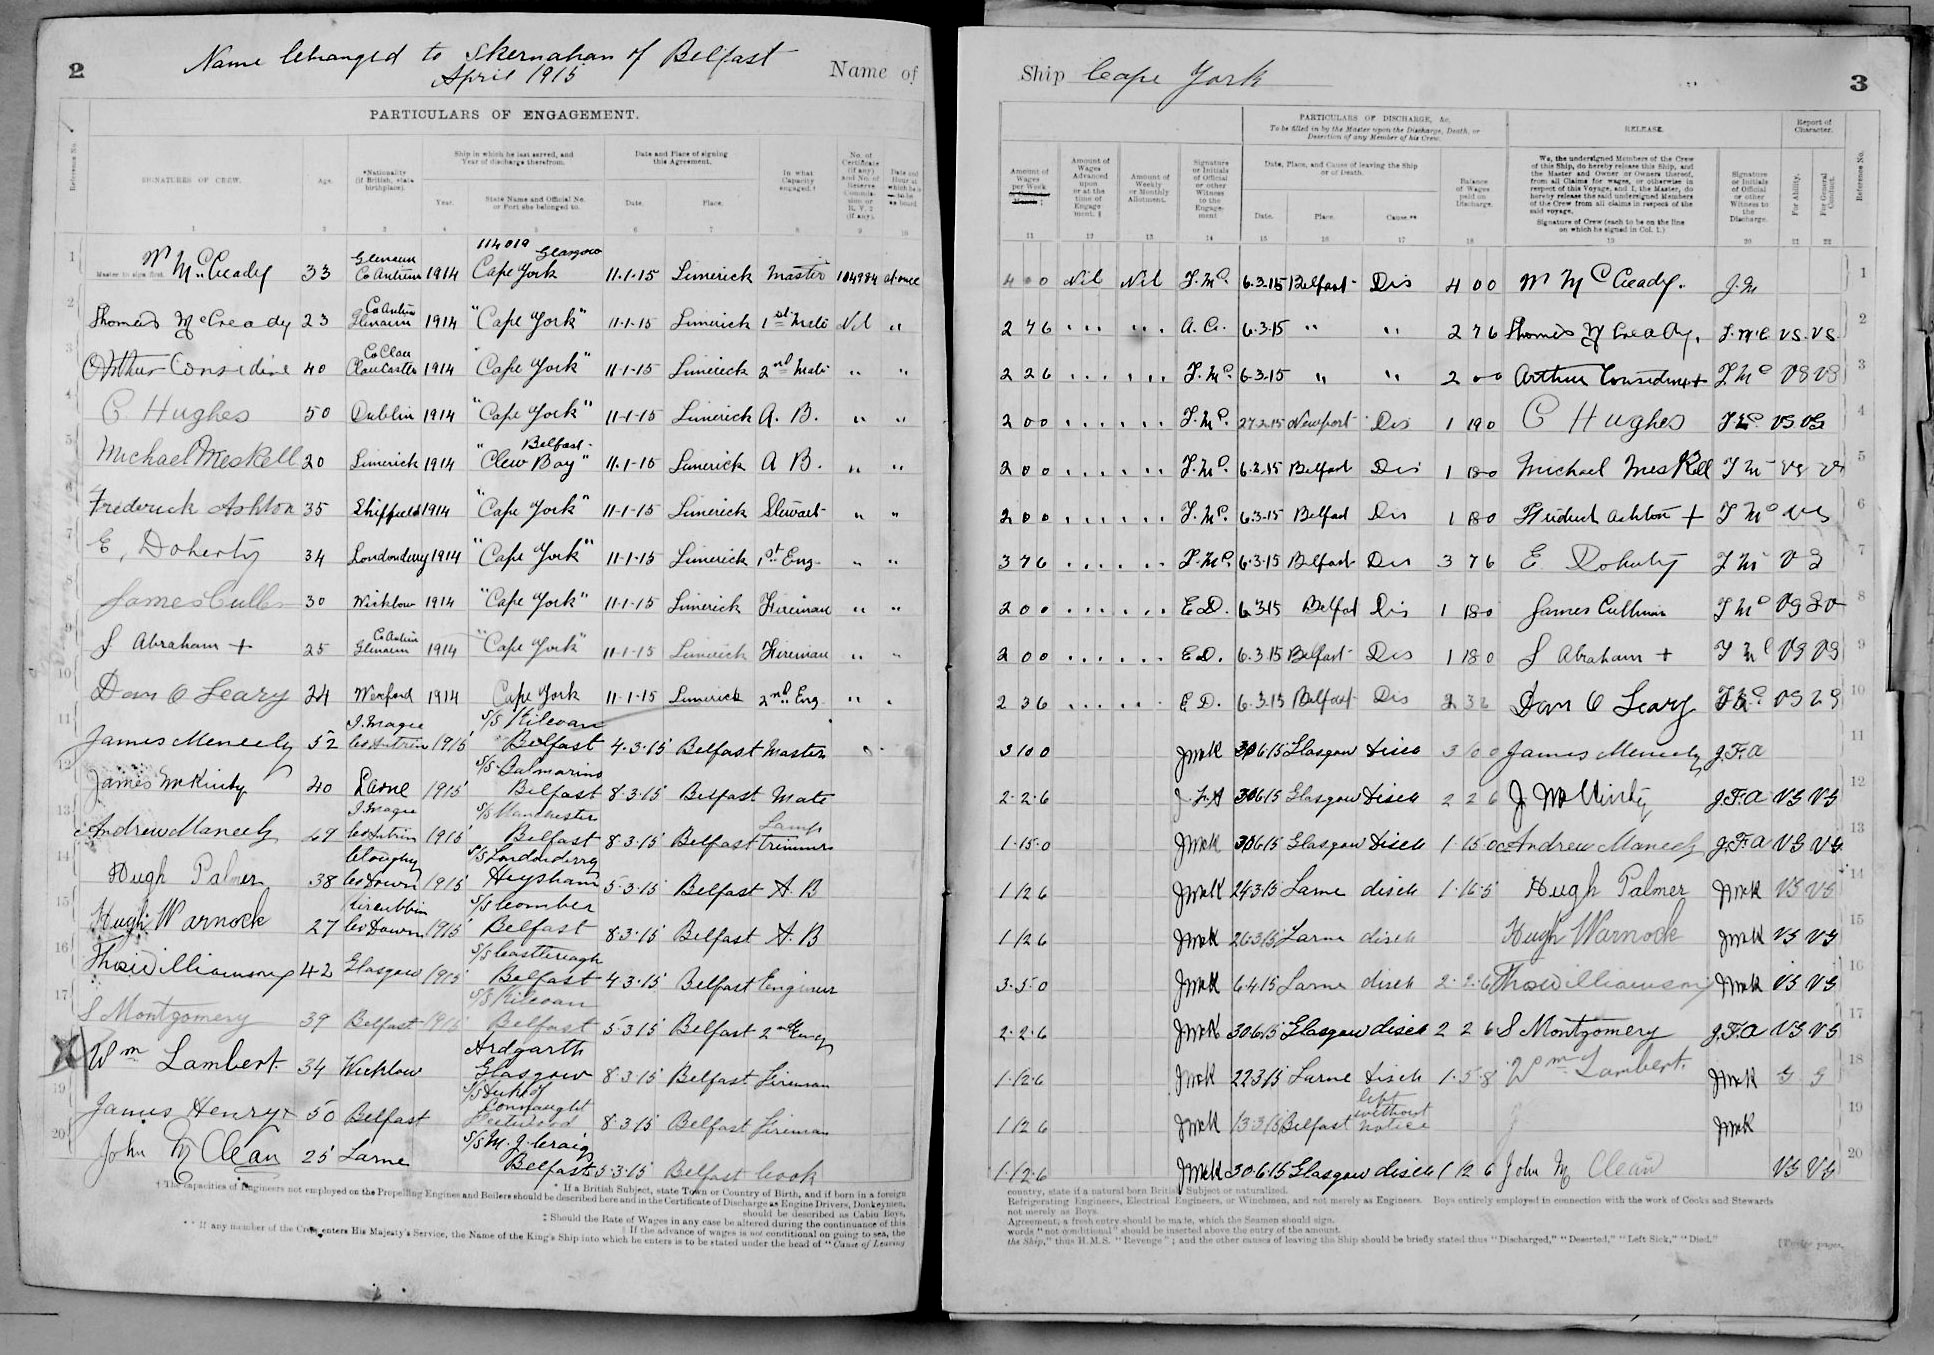 2
Name Changed to Skernahan of Belfast
April 1915
Name of
PARTICULARS OF ENGAGEMENT.
Reference No.
SIGNATURES OF CREW.
Age.
*Nationality (if British, state birthplace).
Ship in which he last served, and Year of discharge therefrom.
Year.
State Name and Official No. or Port she belonged to.
Date and Place of signing this Agreement.
Date.
Place.
In what Capacity engaged.†
No. of Certificate (if any)
1 2 3 4 5 6 7 8 9 10
114019 Glasgow
1 Master to sign first. Wm McCready 33 Glenarm Co Antrim 1914 Cape York 11.1.15 Limerick Master 104984 at once
2 Thomas McCready 23 Co Antrim Glenarm 1914 "Cape York" 11.1.15 Limerick 1st Mate Nil "
3 Arthur Considine 40 Co Clare 1914 "Cape York" 11.1.15 Limerick 2nd Mate " "
4 C. Hughes 50 Dublin 1914 "Cape York" 11.1.15 Limerick A. B. " "
5 Michael Meskell 20 Limerick 1914 "Clew Bay" Belfast 11.1.15 Limerick A B. " "
6 Frederick Ashton 35 Sheffield 1914 "Cape York" 11.1.15 Limerick Steward " "
7 E. Doherty 34 Londonderry 1914 "Cape York" 11.1.15 Limerick 1st Eng. " "
8 James 30 Wicklow 1914 "Cape York" 11.1.15 Limerick Fireman " "
9 J Abraham + 25 Co Antrim Glenarm 1914 "Cape York" 11.1.15 Limerick Fireman " "
10 Dan O Leary 24 Wexford 1914 Cape York 11.1.15 Limerick 2nd Eng "
11 James Meneely 52 I. Magee Co Antrim 1915 S/S Kilcoan Belfast 4.3.15 Belfast Master
12 James McKinty 40 Larne 1915 S/S Balmarino Belfast 8.3.15 Belfast Mate
13 Andrew Maneely 47 I. Magee Co Antrim 1915 S/S Manchester Belfast 8.3.15 Belfast Lamp trimmer
14 Hugh Palmer 38 Cloughy Co Down 1915 S/S Londonderry Heysham 5.3.15 Belfast A. B
15 Hugh Warnock 27 Kircubbin Co Down 1915 S/S Comber Belfast 8.3.15 Belfast A. B
16 Thos Williamson 42 Glasgow 1915 S/S Castlereagh Belfast 4.3.15 Belfast Engineer
17 S Montgomery 39 Belfast 1915 S/S Kilcoan Belfast 5.3.15 Belfast 2nd Eng
X Wm Lambert. 34 Wicklow Ardgarth Glasgow 8.3.15 Belfast Fireman
19 James Henry x 50 Belfast S/S Duke of Connaught Fleetwood 8.3.15 Belfast Fireman
20 John McClean 25 Larne S/S M. J. Craig Belfast 5.3.15 Belfast Cook
* If a British Subject, state Town or Country of Birth, and if born in a foreign
† The capacities of Engineers not employed on the Propelling Engines and Boilers should be described here and in the Certificate of Discharge as Engine Drivers, Donkeymen,
should be described as Cabin Boys.
‡ Should the Rate of Wages in any case be altered during the continuance of this
§ If the advance of wages is not conditional on going to sea, the
** If any member of the Crew enters His Majesty's Service, the Name of the King's Ship into which he enters is to be stated under the head of "Cause of Leaving
Ship Cape York
3
PARTICULARS OF DISCHARGE, &c.
To be filled in by the Master upon the Discharge, Death, or Desertion of any Member of his Crew.
RELEASE.
Report of Character.
Amount of Wages per Week
Amount of Wages Advanced upon or at the time of Engagement. §
Amount of Weekly or Monthly Allotment.
Signature or Initials of Official or other Witness to the Engagement
Date, Place, and Cause of leaving the Ship or of Death.
Date. Place. Cause.**
Balance of Wages paid on Discharge.
We, the undersigned Members of the Crew of this Ship, do hereby release this Ship, and the Master and Owner or Owners thereof, from all Claims for wages, or otherwise in respect of this Voyage, and I, the Master, do hereby release the said undersigned Members of the Crew from all claims in respect of the said voyage.
Signature of Crew (each to be on the line on which he signed in Col. 1.)
Signature or Initials of Official or other Witness to the Discharge.
For Ability.
For General Conduct.
Reference No.
11 12 13 14 15 16 17 18 19 20 21 22
4 0 0 Nil Nil T. Mc. 6.3.15 Belfast Dis 4 0 0 Wm McCready. 1
2 7 6 A. C. 6.3.15 " " 2 7 6 Thomas McCready. T. McC VS. VS. 2
2 2 6 T. Mc. 6.3.15 " " 2 0 0 Arthur Considine + T Mc VG VG 3
2 0 0 T. Mc. 27.2.15 Newport Dis 1 19 0 C Hughes VG VG 4
2 0 0 T. Mc. 6.3.15 Belfast Dis 1 18 0 Michael Meskell 5
2 0 0 T. Mc. 6.3.15 Belfast Dis 1 18 0 Ashton + T Mc 6
3 7 6 T. Mc. 6.3.15 Belfast Dis 3 7 6 E. Doherty 7
2 0 0 E D. 6.3.15 Belfast Dis 1 18 0 James Cullinan T Mc 8
2 0 0 E D. 6.3.15 Belfast Dis 1 18 0 J Abraham + VG VG 9
2 3 6 E D. 6.3.15 Belfast Dis Dan O Leary 10
3 10 0 JMcK 30.6.15 Glasgow disch 3 10 0 James Meneely J.F.A 11
2.2.6 30.6.15 Glasgow disch 2 2 6 J McKinty J.F.A VG VG 12
1.15.0 JMcK 30.6.15 Glasgow disch 1.15.0 Andrew Maneely J.F.A VG VG 13
1 12 6 JMcK 24.3.15 Larne disch 1.16.5 Hugh Palmer JMcK VG VG 14
1 12 6 JMcK 26.3.15 Larne disch Hugh Warnock JMcK VG VG 15
3.5.0 JMcK 6.4.15 Larne disch 2.2.6 Thos Williamson JMcK VG VG 16
2.2.6 JMcK 30.6.15 Glasgow disch 2 2 6 S Montgomery J.F.A VG VG 17
1.12.6 JMcK 22.3.15 Larne disch 1.5.8 Wm Lambert. JMcK G G 18
1 12 6 JMcK 13.3.15 Belfast left without notice JMcK 19
1.12.6 JMcK 30.6.15 Glasgow disch 1 12 6 John McClean VG VG 20
country, state if a natural born British Subject or naturalized.
Refrigerating Engineers, Electrical Engineers, or Winchmen, and not merely as Engineers. Boys entirely employed in connection with the work of Cooks and Stewards
not merely as Boys.
Agreement, a fresh entry should be made, which the Seamen should sign.
words "not conditional" should be inserted above the entry of the amount.
the Ship," thus H.M.S. "Revenge"; and the other causes of leaving the Ship should be briefly stated thus "Discharged," "Deserted," "Left Sick," "Died."